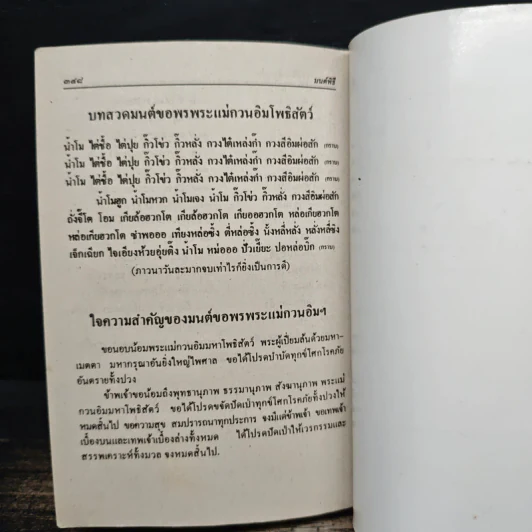 ๓๔๘ มนต์พิธี
บทสวดมนต์ขอพรพระแม่กวนอิมโพธิสัตว์
น้ำโม ไต่ชื้อ ไต่ปุย กิ๊วโข่ว กิ๊วหลั่ง กวงไต๋เหล่งก้ำ กวงสี่อิมผ่อสัก (กราบ)
น้ำโม ไต่ชื้อ ไต่ปุย กิ๊วโข่ว กิ๊วหลั่ง กวงไต๋เหล่งก้ำ กวงสี่อิมผ่อสัก (กราบ)
น้ำโม ไต่ชื้อ ไต่ปุย กิ๊วโข่ว กิ๊วหลั่ง กวงไต๋เหล่งก้ำ กวงสี่อิมผ่อสัก (กราบ)
น้ำโมฮูก น้ำโมหวก น้ำโมเจง น้ำโม กิ๊วโข่ว กิ๊วหลั่ง กวงสี่อิมผ่อสัก
ถั่งจี้โต โอม เกียล้อฮวกโต เกียล้อฮวกโต เกียออฮวกโต หล่อเกียฮวกโต
หล่อเกียฮวกโต ซำพอออ เทียงหล่อซิ้ง ตี่หล่อซิ้ง นั้งหลี่หลั่ง หลั่งหลี่ซิง
เจ็กเฉียก ไจเอียงห้วยอุ่ยติ้ง น้ำโม หม่อออ ปัวเยี๊ยะ ปอหล่อบิ๊ก (กราบ)
(ภาวนาวันละมากจบเท่าไรก็ยิ่งเป็นการดี)
ใจความสำคัญของมนต์ขอพรพระแม่กวนอิมฯ
ขอนอบน้อมพระแม่กวนอิมมหาโพธิสัตว์ พระผู้เปี่ยมล้นด้วยมหา-
เมตตา มหากรุณาอันยิ่งใหญ่ไพศาล ขอได้โปรดบำบัดทุกข์โศกโรคภัย
อันตรายทั้งปวง
ข้าพเจ้าขอน้อมถึงพุทธานุภาพ ธรรมานุภาพ สังฆานุภาพ พระแม่
กวนอิมมหาโพธิสัตว์ ขอได้โปรดขจัดปัดเป่าทุกข์โศกโรคภัยทั้งปวงให้
หมดสิ้นไป ขอความสุข สมปรารถนาทุกประการ จงมีแด่ข้าพเจ้า ขอเทพเจ้า
เบื้องบนและเทพเจ้าเบื้องล่างทั้งหมด ได้โปรดปัดเป่าให้เวรกรรมและ
สรรพเคราะห์ทั้งมวล จงหมดสิ้นไป.